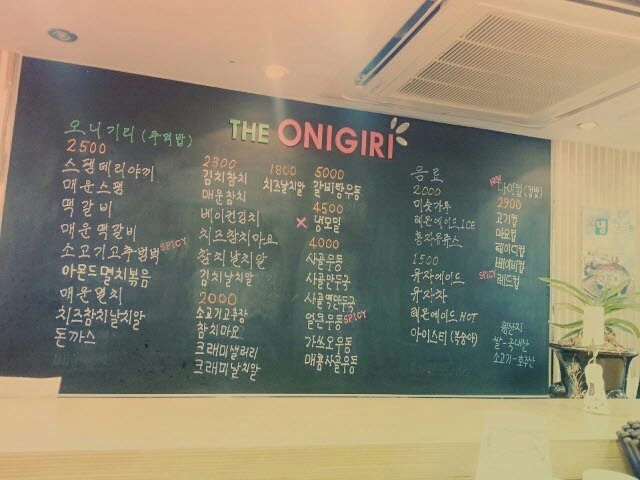 THE ONIGIRI
오니기리 (주먹밥)
2500
스팸데리야끼
매운스팸
떡갈비
매운떡갈비
소고기고추범벅 SPICY
아몬드멸치볶음
매운멸치
치즈참치날치알
돈까스
2300
김치참치
매운참치
베이컨김치
치즈참치마요
참치날치알
김치날치알
2000
소고기고추장
참치마요
크래미샐러리
크래미날치알
1800
치즈날치알
5000
갈비탕우동
4500
× 냉모밀
4000
사골우동
사골만두국
사골떡만두국
얼큰우동 SPICY
가쓰오우동
매콤사골우동
음료
2000
미숫가루
레몬에이드.ICE
홍자몽쥬스
1500
유자에이드
유자차
레몬에이드.HOT
아이스티 (복숭아)
NEW 다이컵 (컵밥)
2900
고기컵
마요컵
레이디컵
베이비컵
SPICY 레드컵
원산지
쌀-국내산
소고기-호주산
냉